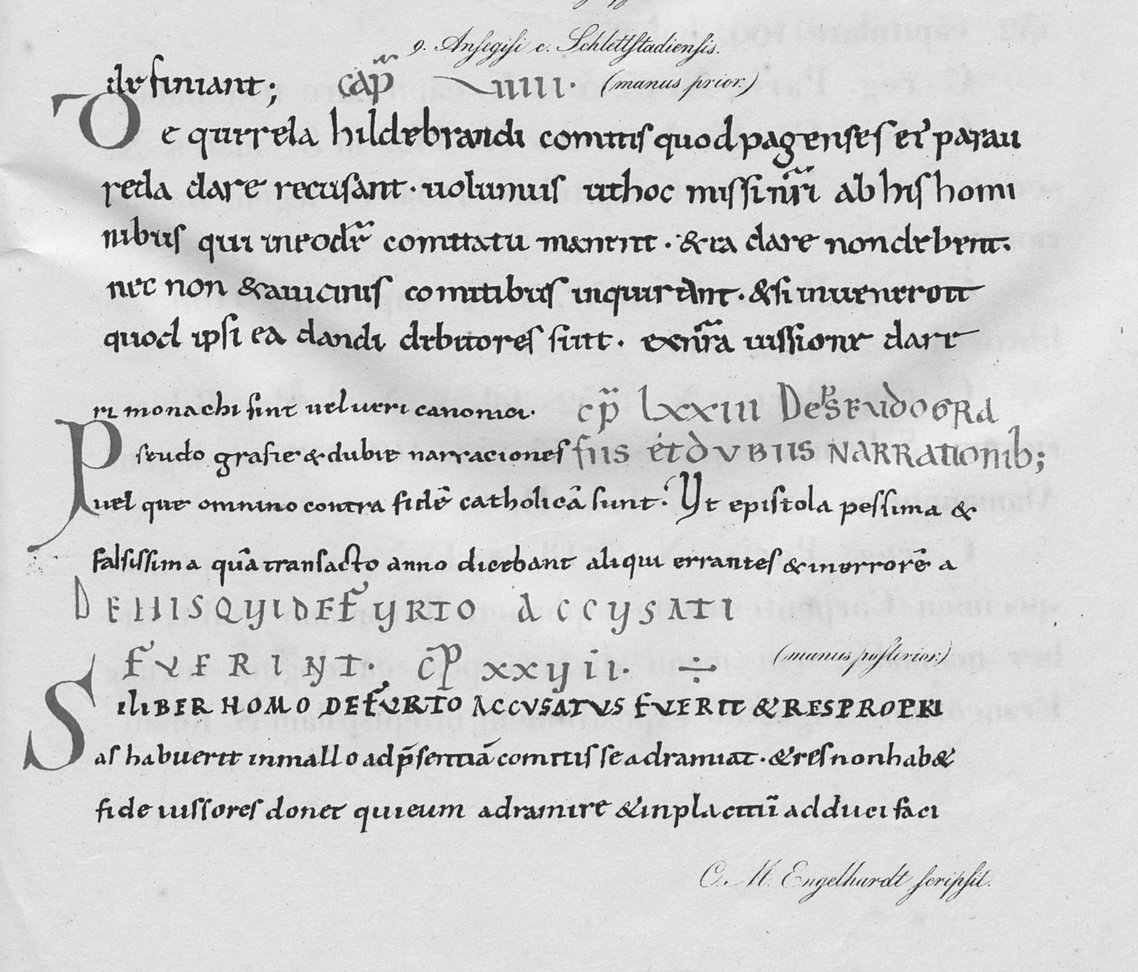 9. Ansegisi c. Schlettstadiensis.
definiant; cap̄ VIIII. (manus prior.)
De querela hildebrandi comitis quod pagenses ei parau
reda dare recusant. uolumus ut hoc missi nr̄i ab his homi
nibus qui in eodē comitatu manent. & ea dare non debent.
nec non & a uicinis comitibus inquirant. & si inuenerint
quod ipsi ea dandi debitores sint. ex nr̄a iussione dare
ri monachi sint uel ueri canonici. cp̄ lxxiii De pseudogra
Pseudo grafie & dubie narraciones fiis et dubiis narrationib;
uel que omnino contra fidē catholicā sunt. Ut epistola pessima &
falsissima quā transacto anno dicebant aliqui errantes & in errorē a
DE HIS QUI DE FURTO ACCUSATI
FUERINT. CP̄ XXVII. ÷ (manus posterior.)
SI LIBER HOMO DE FURTO ACCVSATVS FVERIT & RES PROPRI
as habuerit in mallo ad p̄sentiā comitis se adramiat. & res non hab&
fideiussores donet qui eum adramire & in placitū adduci faci
C. M. Engelhardt scripsit.